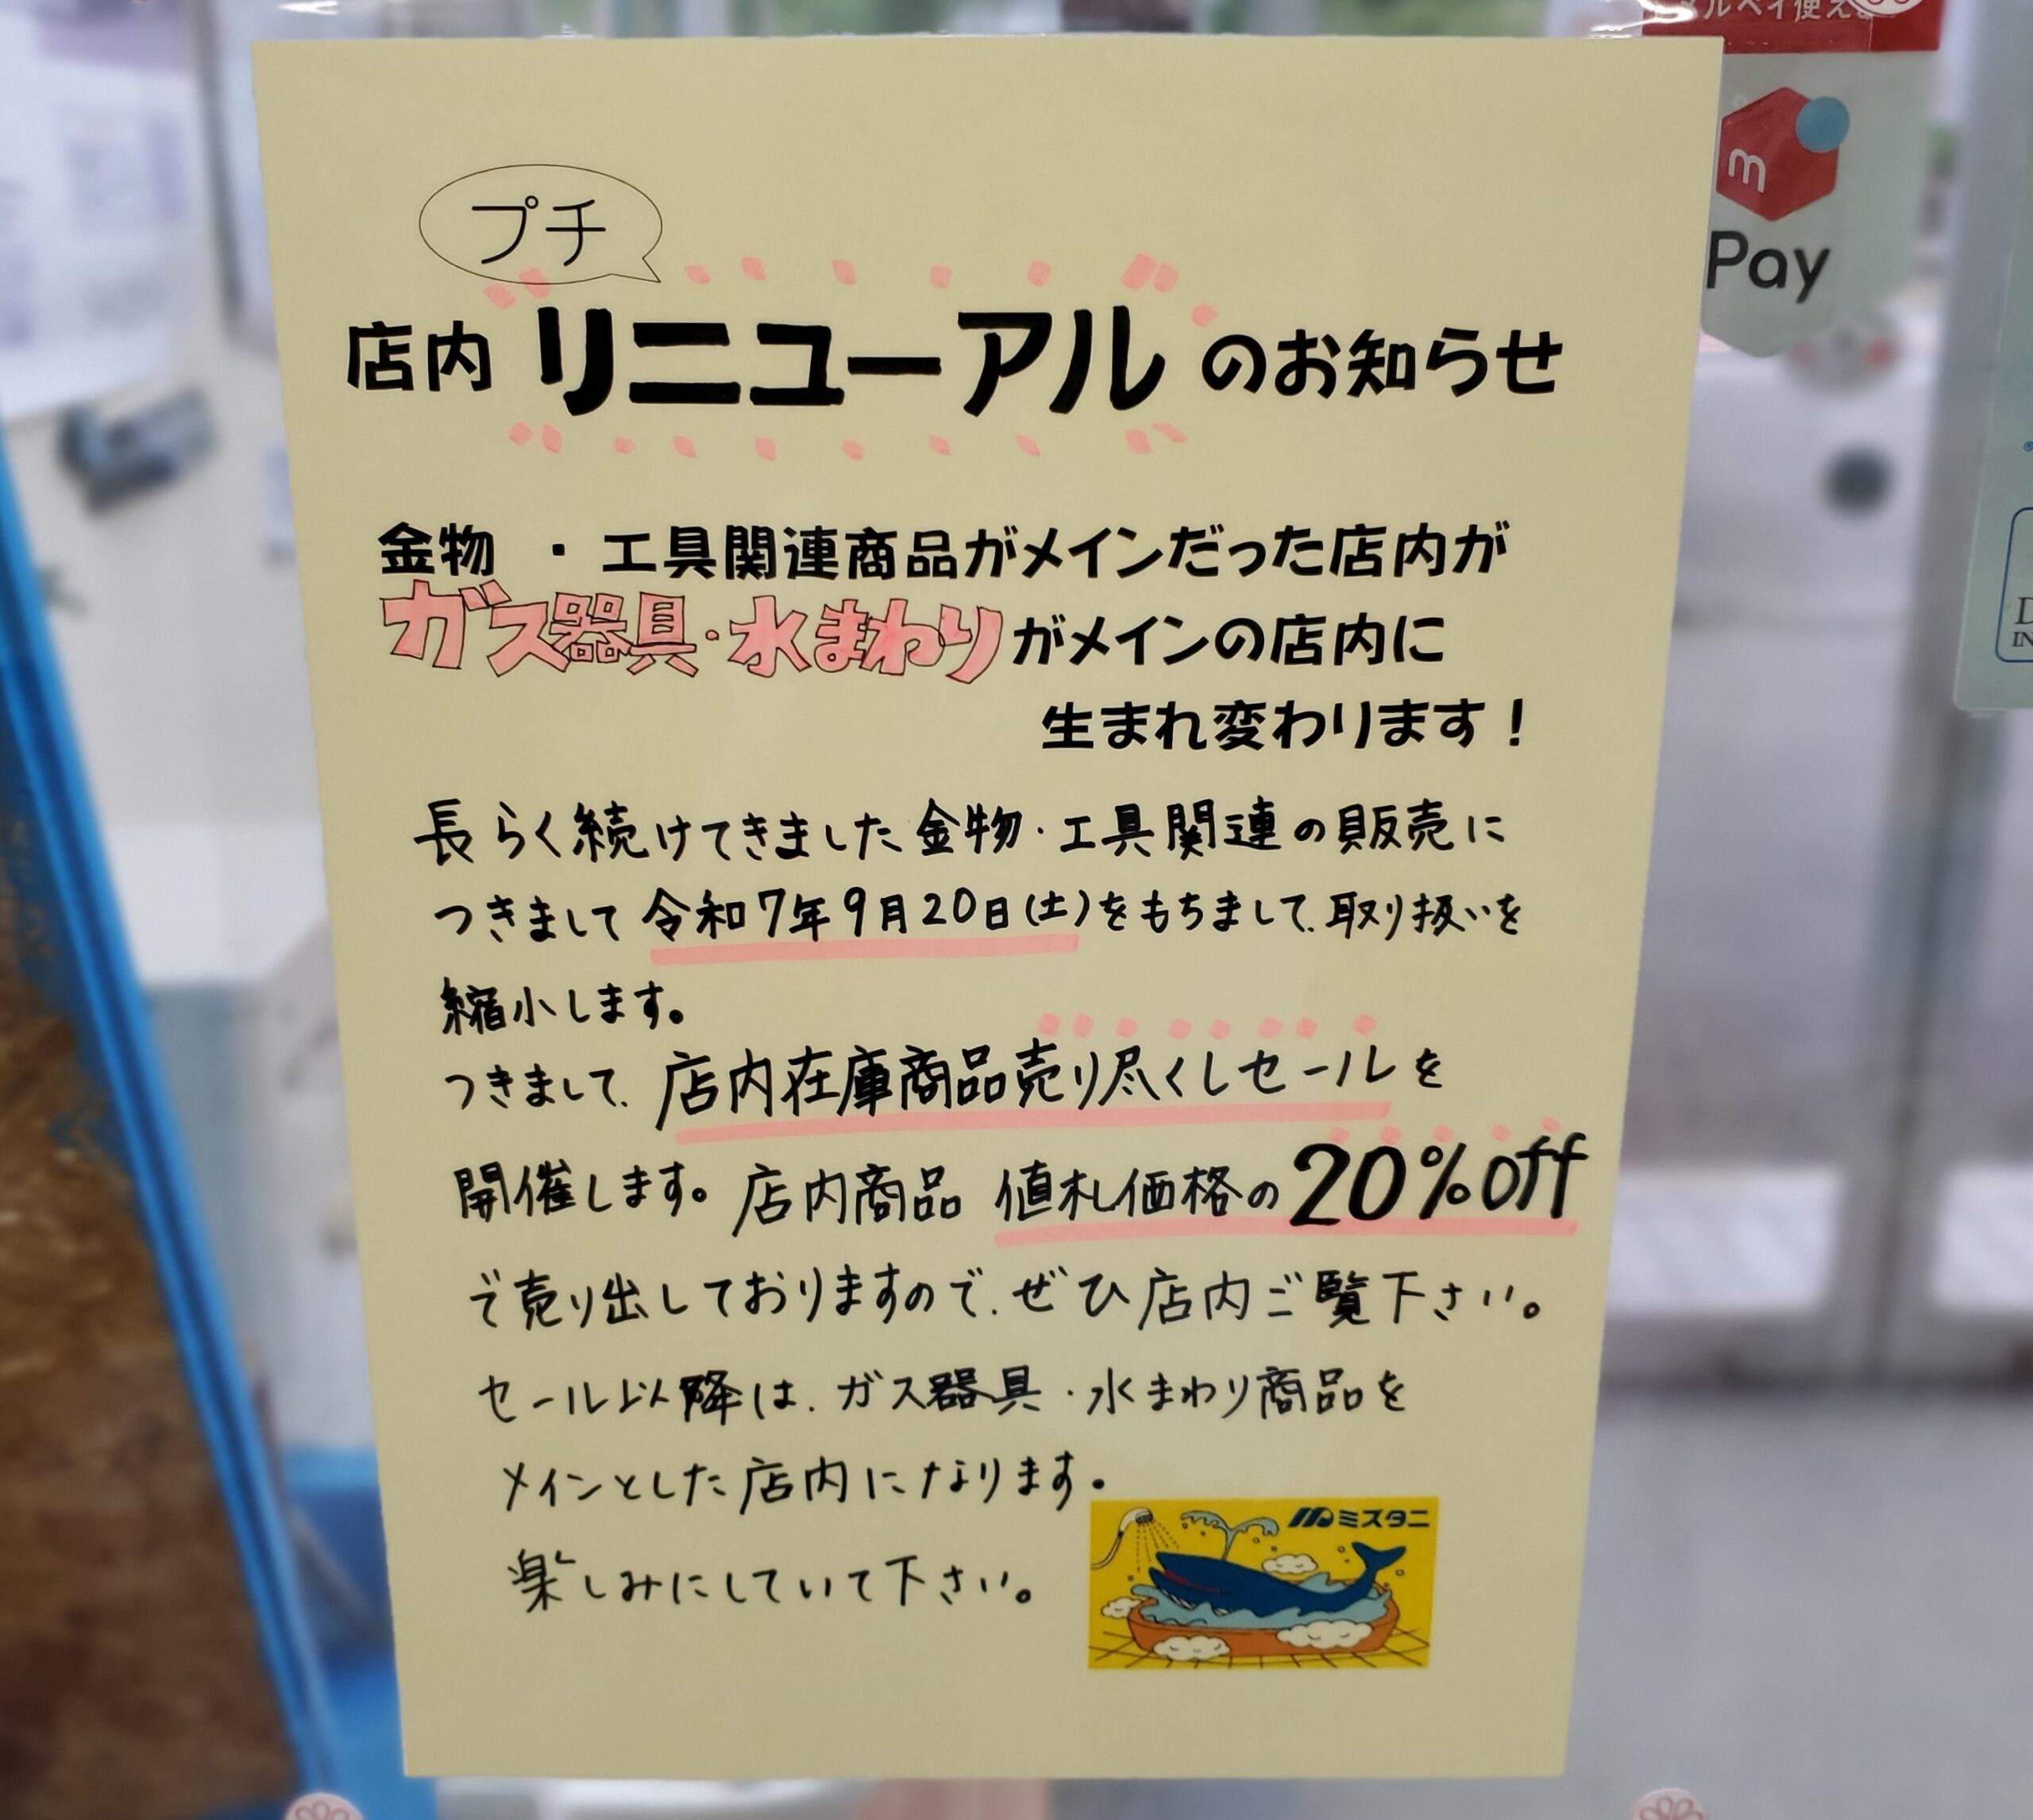 プチ
店内 リニューアル のお知らせ
金物 ・工具関連商品がメインだった店内が
ガス器具・水まわりがメインの店内に
生まれ変わります！
長らく続けてきました金物・工具関連の販売に
つきまして 令和7年9月20日(土)をもちまして、取り扱いを
縮小します。
つきまして、店内在庫商品売り尽くしセールを
開催します。店内商品 値札価格の20%off
で売り出しておりますので、ぜひ店内ご覧下さい。
セール以降は、ガス器具・水まわり商品を
メインとした店内になります。
楽しみにしていて下さい。
ミズタニ
メルペイ使え
m
Pay
D
IN